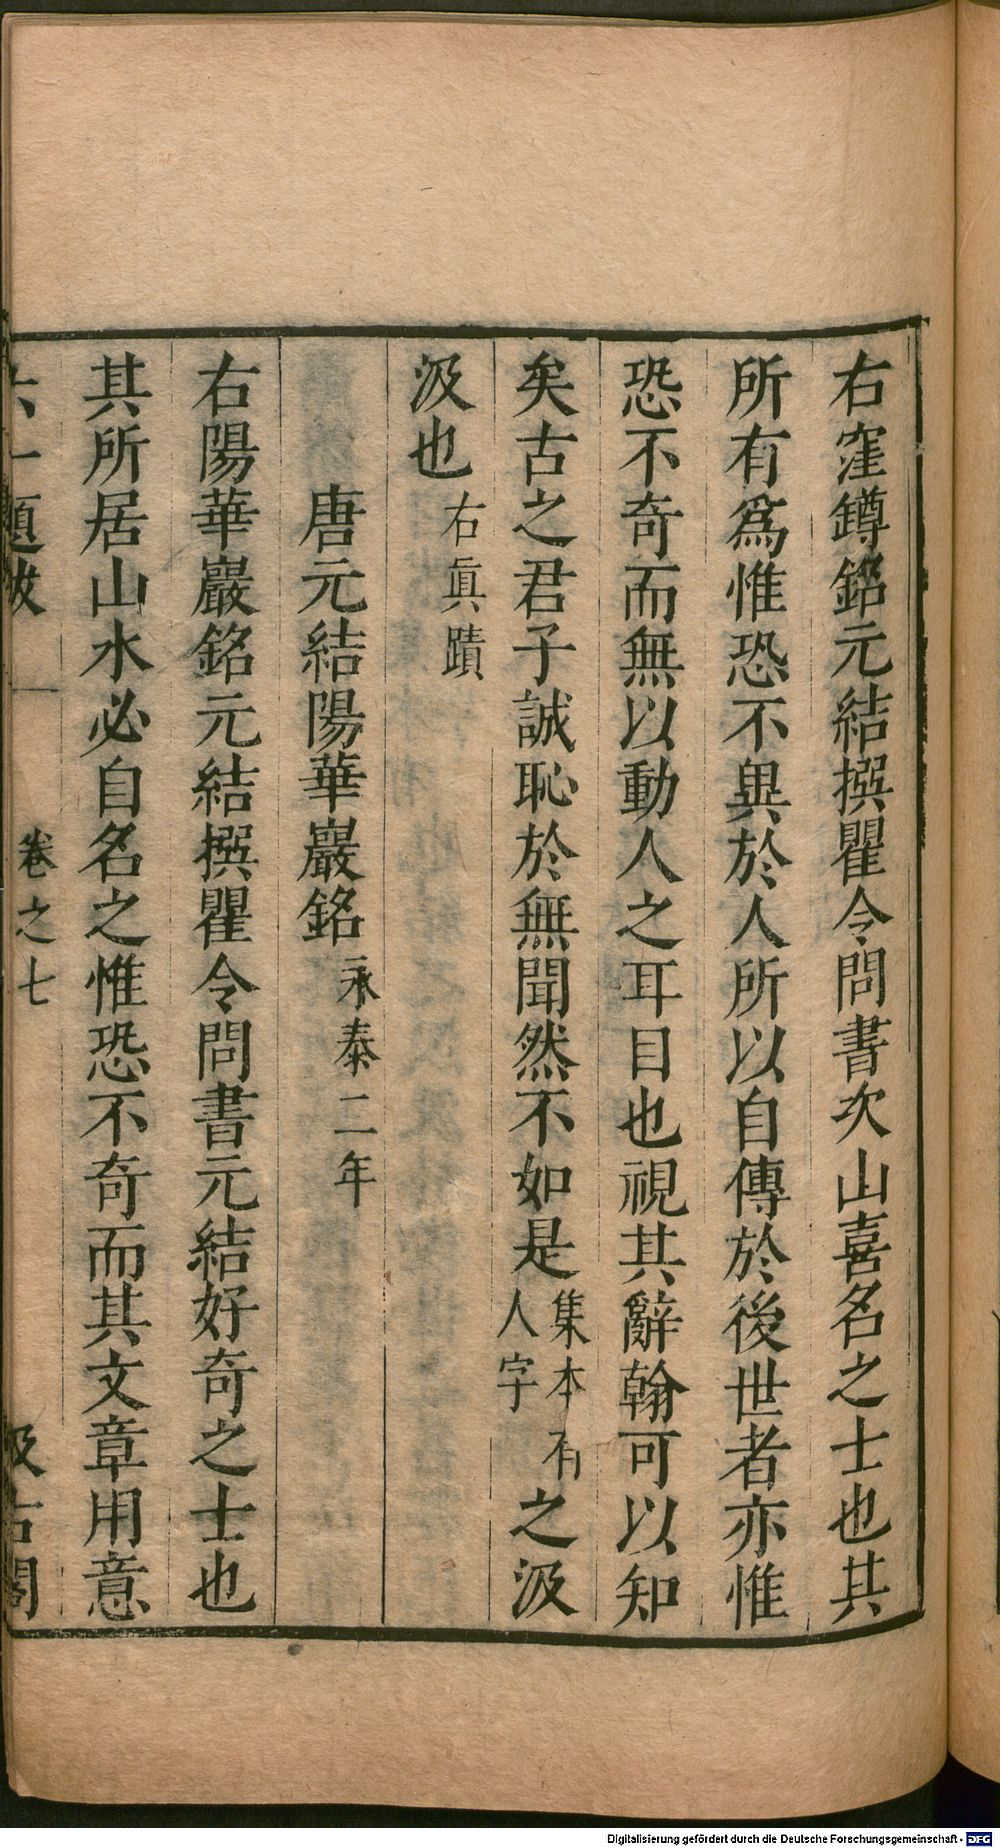 右窪罇銘元結撰瞿令問書次山喜名之士也其
所有爲惟恐不異於人所以自傳於後世者亦惟
恐不奇而無以動人之耳目也視其辭翰可以知
矣古之君子誠恥於無聞然不如是集本有人字之汲
汲也右眞蹟
唐元結陽華巖銘永泰二年
右陽華巖銘元結撰瞿令問書元結好奇之士也
其所居山水必自名之惟恐不奇而其文章用意
六一題跋 卷之七 汲古閣
Digitalisierung gefördert durch die Deutsche Forschungsgemeinschaft - DFG